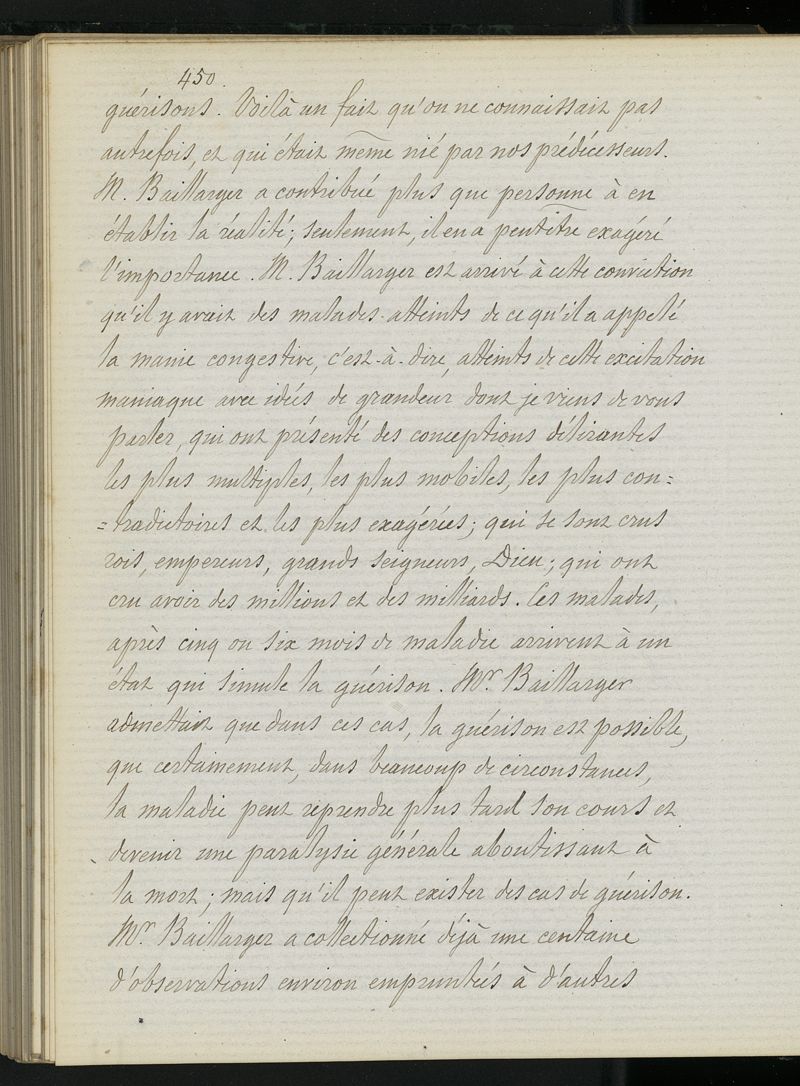 450.
guérisons. Voilà un fait qu'on ne connaissait pas
autrefois, et qui était même nié par nos prédécesseurs.
M. Baillarger a contribué plus que personne à en
établir la réalité; seulement, il en a peut être exagéré
l'importance. M. Baillarger est arrivé à cette conviction
qu'il y avait des malades atteints de ce qu'il a appelé
la manie congestive, c'est-à-dire, atteints de cette excitation
maniaque avec idées de grandeur dont je viens de vous
parler, qui ont présenté des conceptions délirantes
les plus multiples, les plus mobiles, les plus con=
=tradictoires et les plus exagérées; qui se sont crus
rois, empereurs, grands seigneurs, Dieu; qui ont
cru avoir des millions et des milliards. Ces malades,
après cinq ou six mois de maladie arrivent à un
état qui simule la guérison. Mr. Baillarger
admettait que dans ces cas, la guérison est possible,
que certainement, dans beaucoup de circonstances,
la maladie peut reprendre plus tard son cours et
devenir une paralysie générale aboutissant à
la mort; mais qu'il peut exister des cas de guérison.
Mr. Baillarger a collectionné déjà une centaine
d'observations environ empruntées à d'autres